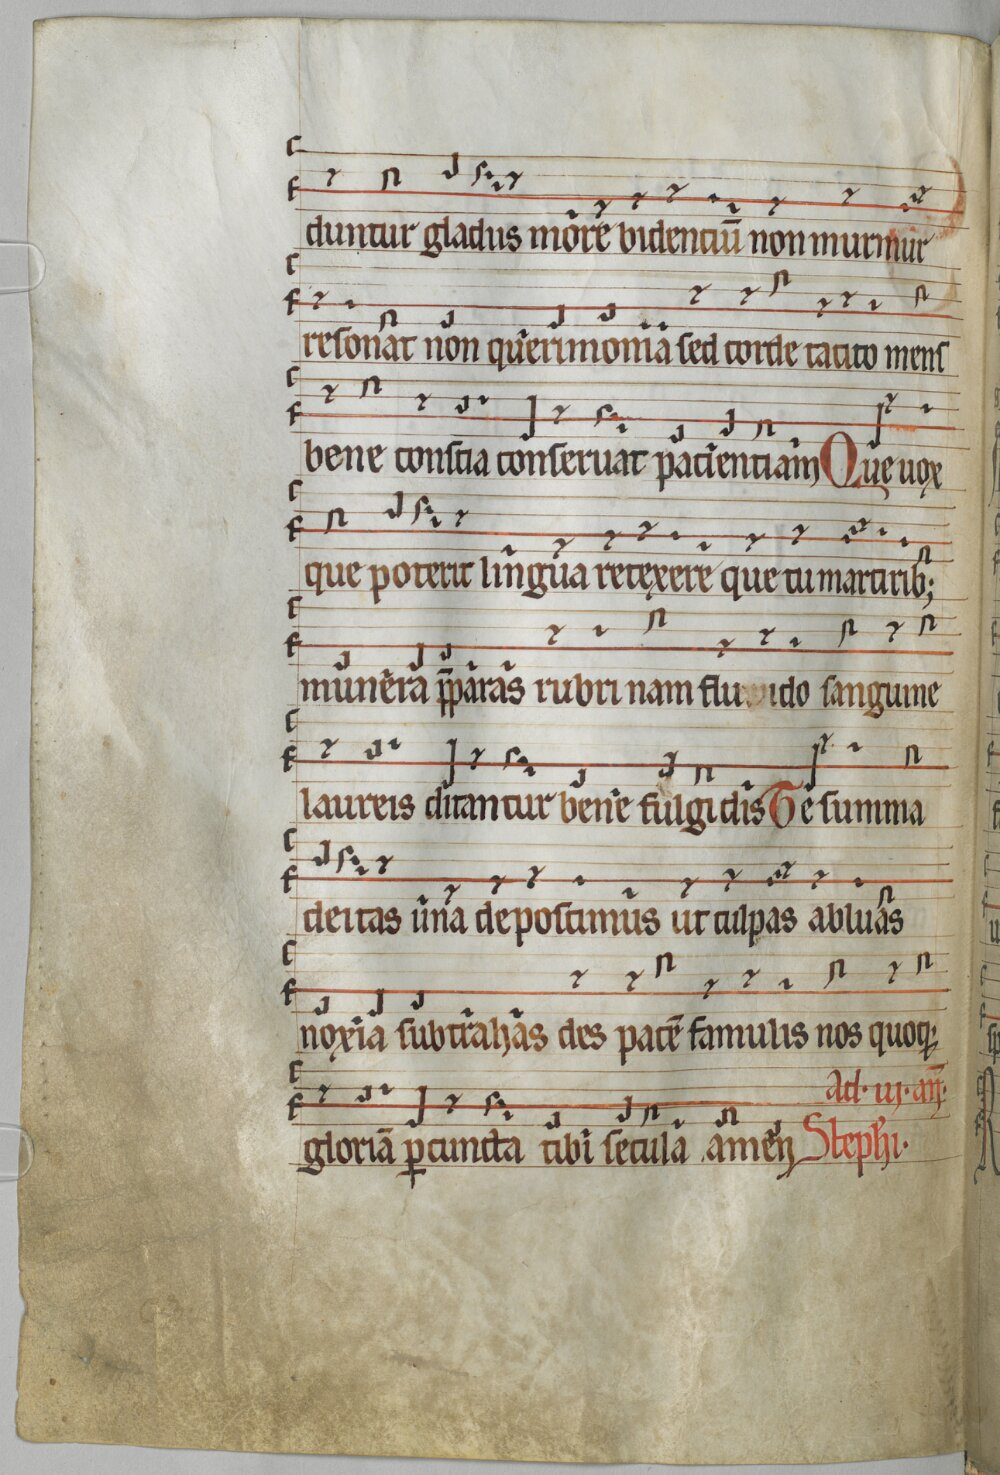 duntur gladiis more bidentiū non murmur
resonat non querimonia sed corde tacito mens
bene conscia conseruat pacientiam Que uox
que poterit lingua retexere que tu martirib;
munera p̄paras rubri nam fluuido sanguine
laureis ditantur bene fulgidis Te summa
deitas una deposcimus ut culpas abluas
noxia subtrahas des pacē famulis nos quoq;
Ad · iij · añ ·
gloriā ꝑ cuncta tibi secula amen Steph̄i ·